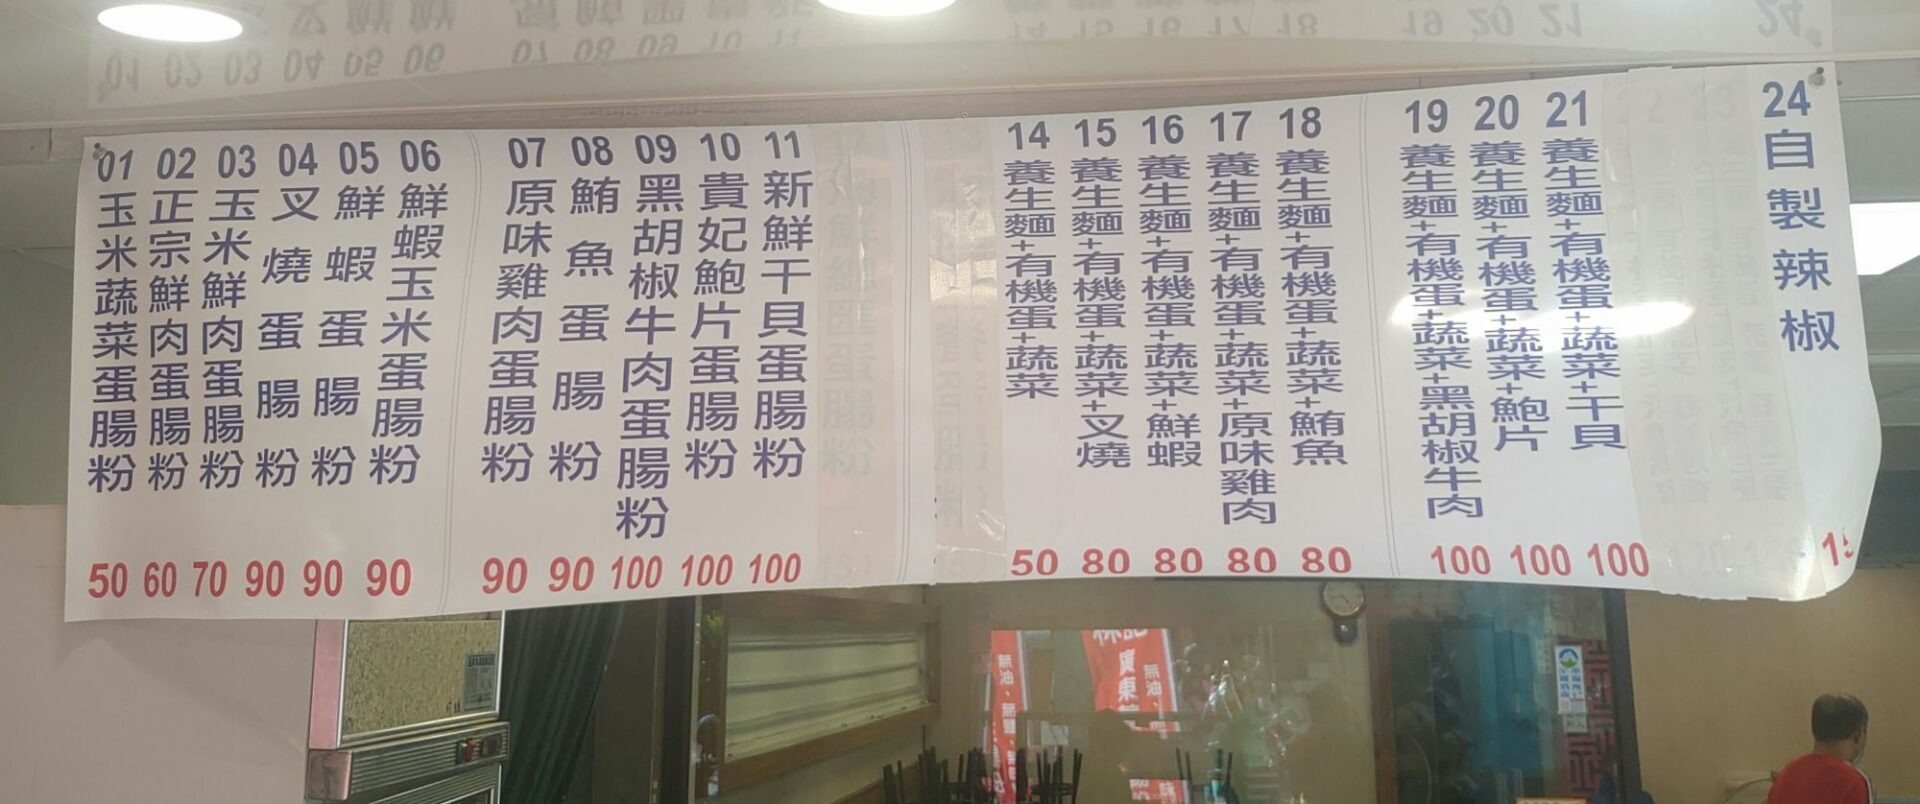 01 玉米蔬菜蛋腸粉 50
02 正宗鮮肉蛋腸粉 60
03 玉米鮮肉蛋腸粉 70
04 叉燒蛋腸粉 90
05 鮮蝦蛋腸粉 90
06 鮮蝦玉米蛋腸粉 90
07 原味雞肉蛋腸粉 90
08 鮪魚蛋腸粉 90
09 黑胡椒牛肉蛋腸粉 100
10 貴妃鮑片蛋腸粉 100
11 新鮮干貝蛋腸粉 100
14 養生麵+有機蛋+蔬菜 50
15 養生麵+有機蛋+蔬菜+叉燒 80
16 養生麵+有機蛋+蔬菜+鮮蝦 80
17 養生麵+有機蛋+蔬菜+原味雞肉 80
18 養生麵+有機蛋+蔬菜+鮪魚 80
19 養生麵+有機蛋+蔬菜+黑胡椒牛肉 100
20 養生麵+有機蛋+蔬菜+鮑片 100
21 養生麵+有機蛋+蔬菜+干貝 100
24 自製辣椒
無油
廣東
無油